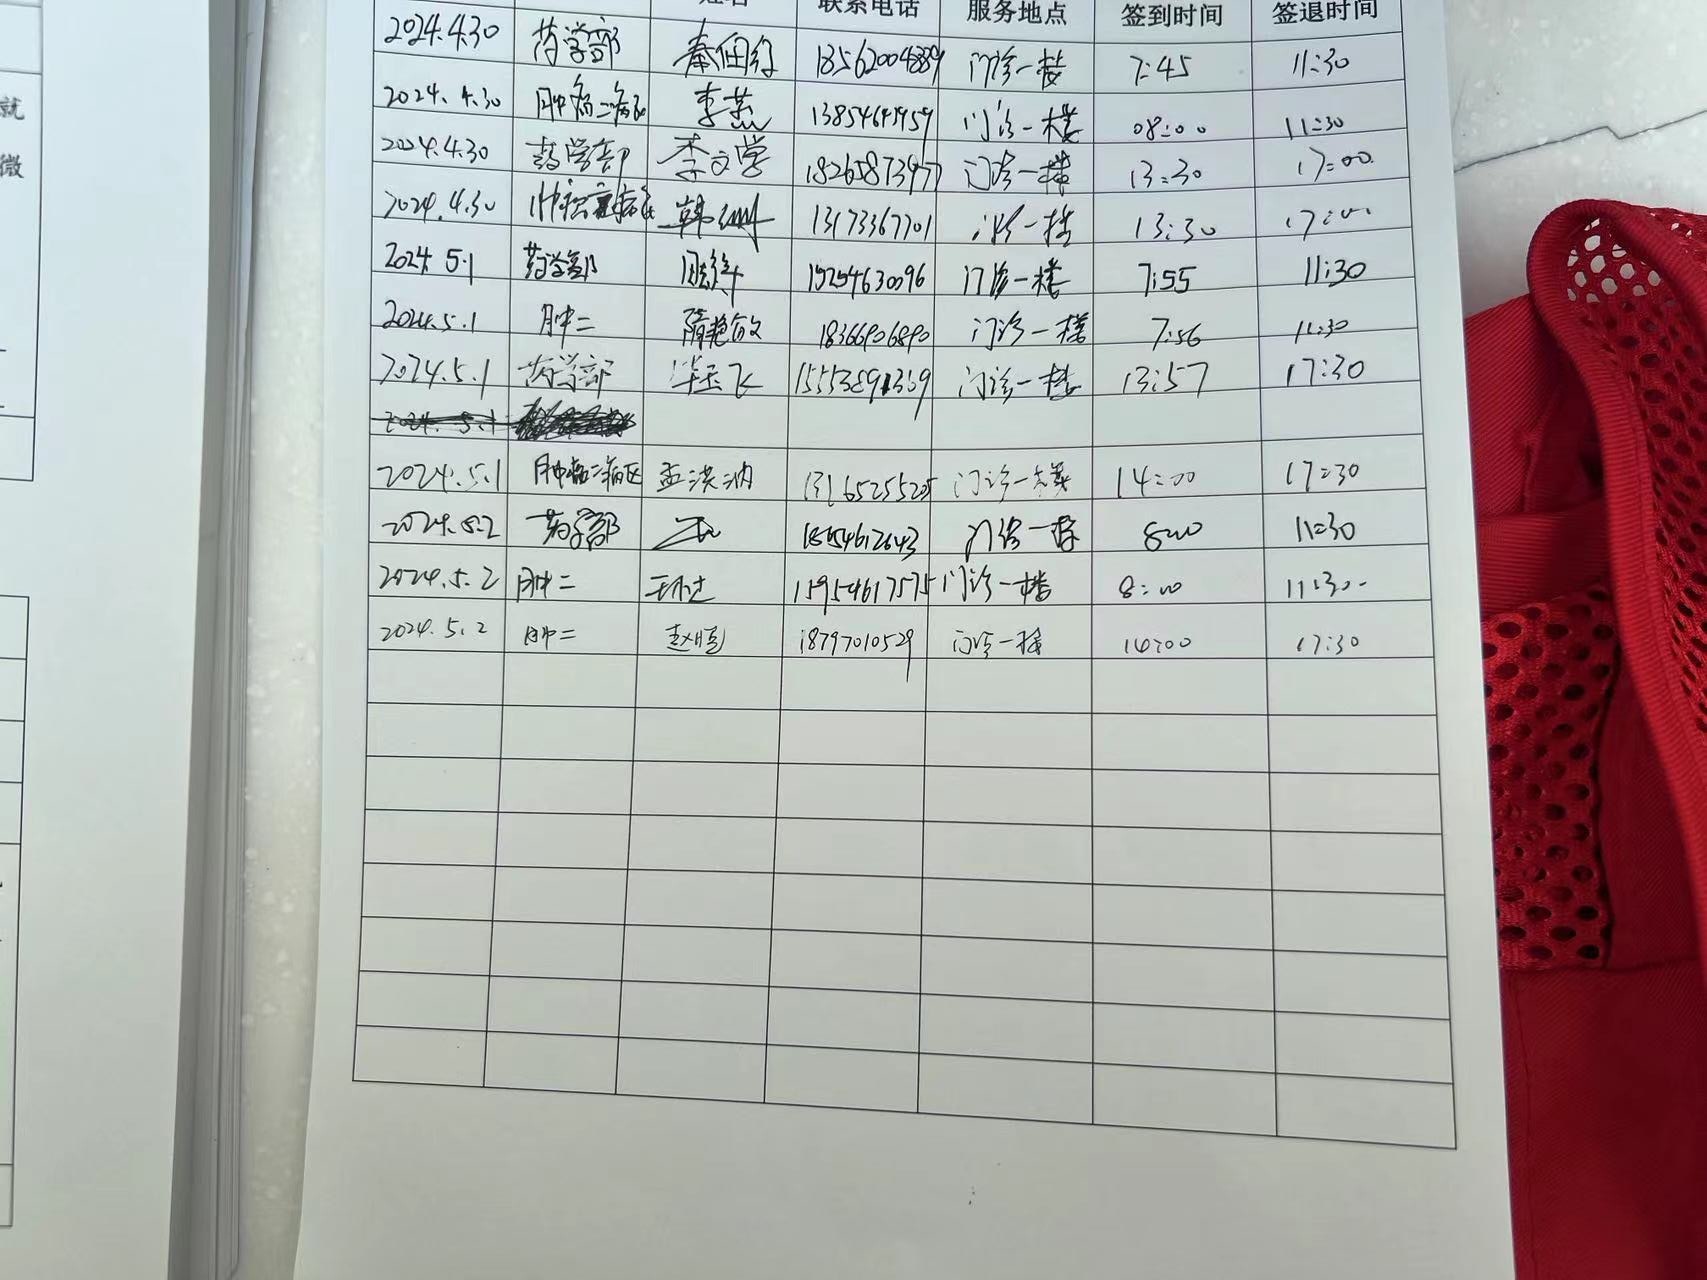 就
微
姓名 联系电话 服务地点 签到时间 签退时间
2024.4.30 药学部 秦 门诊一楼 7:45 11:30
2024.4.30 肿瘤二病区 李燕 门诊一楼 08:00 11:30
2024.4.30 药学部 李文学 门诊一楼 13:30 17:00
2024.4.30 韩 13173367701 门诊一楼 13:30 17:00
2024.5.1 药学部 15254630096 门诊一楼 7:55 11:30
2024.5.1 肿二 隋艳敏 18366906890 门诊一楼 7:56 11:30
2024.5.1 药学部 飞 门诊一楼 13:57 17:30
2024.5.1
2024.5.1 肿瘤二病区 孟洪汭 门诊一楼 14:00 17:30
2024.5.2 药学部 18654612643 门诊一楼 8:00 11:30
2024.5.2 肿二 15954617575 门诊一楼 8:00 11:30
2024.5.2 肿二 赵 18797010529 门诊一楼 14:00 17:30